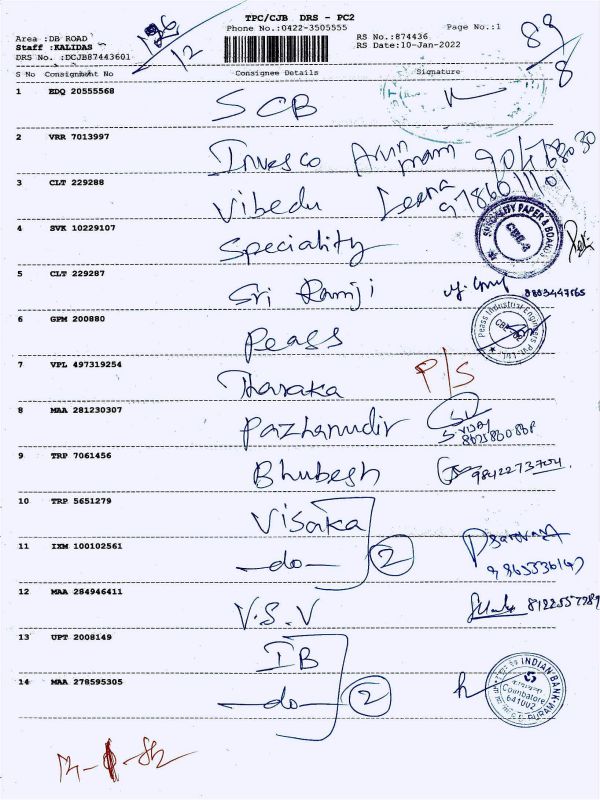 TPC/CJB DRS - PC2
Phone No.:0422-3505555
Page No.:1
Area :DB ROAD
Staff :KALIDAS
DRS No. :DCJB87443601
RS No.:874436
RS Date:10-Jan-2022
126/12
89/8
S No Consignment No Consignee Details Signature
1 EDQ 20555568 SCB
2 VRR 7013997 Invesco Arun
3 CLT 229288 Vibedu Leena 9786011101
4 SVK 10229107 Speciality
SPECIALITY PAPER & BOARDS
CBE-4
5 CLT 229287 Sri Ramji
6 GFM 200880 Peass
Peass Industrial Engineers Pvt. Ltd.
7 VPL 497319254 Tharaka P/S
8 MAA 281230307 Pazhamudir
9 TRP 7061456 Bhubesh 9842273704
10 TRP 5651279 Visaka
11 IXM 100102561 -do- 2
12 MAA 284946411 V.S.V
13 UPT 2008149 IB
14 MAA 278595305 -do- 2
INDIAN BANK
Coimbatore
641002
R.S. PURAM